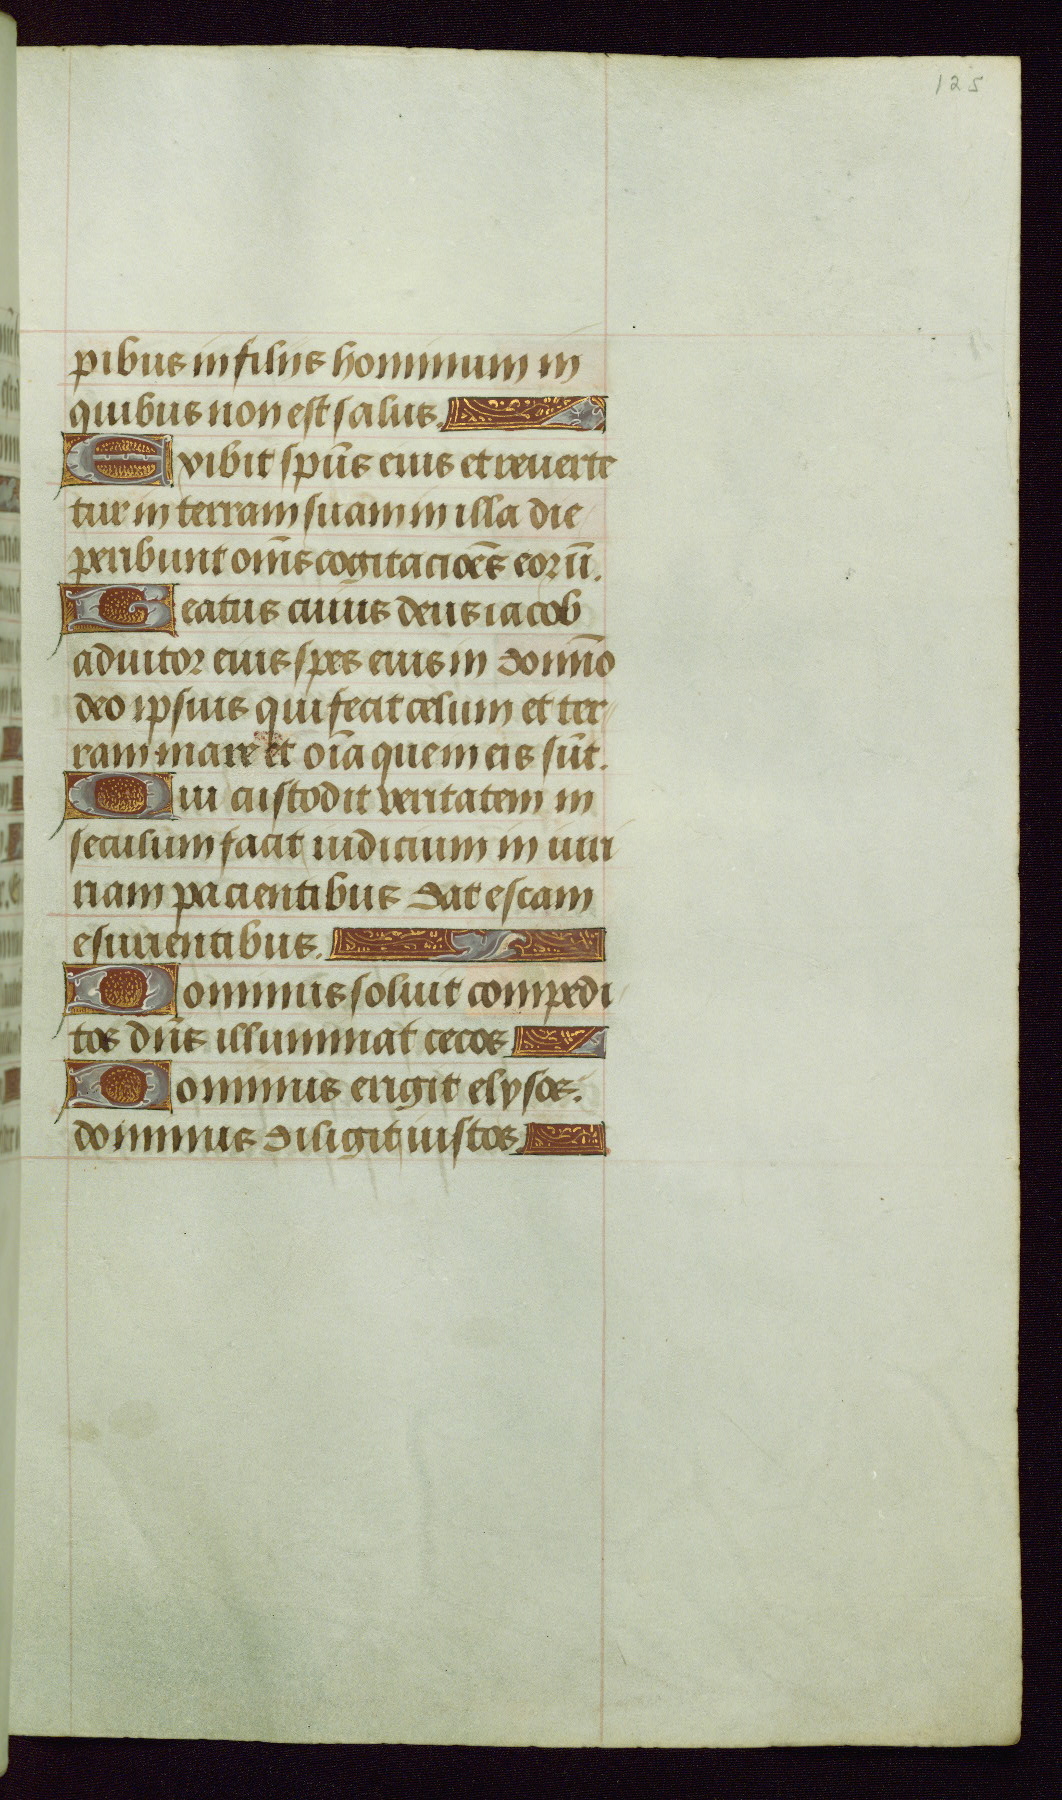 125
pibus in filiis hominum in
quibus non est salus.
Exibit spūs eius et reuerte
tur in terram suam in illa die
peribunt oms̄ cogitacioēs eorū.
Beatus cuius deus iacob
adiutor eius spes eius in domīno
deo ipsius qui fecit celum et ter
ram mare et oīa que in eis sūt.
Qui custodit veritatem in
seculum facit iudicium in iniu
riam pacientibus dat escam
esurientibus.
Dominus soluit compedi
tos dn̄s illuminat cecos
Dominus erigit elysos.
dominus diligit iustos